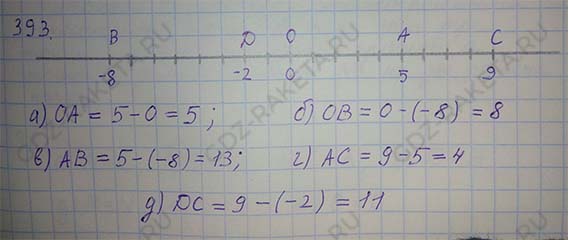 393.
B D O A C
-8 -2 0 5 9
а) OA = 5 - 0 = 5; б) OB = 0 - (-8) = 8
в) AB = 5 - (-8) = 13; г) AC = 9 - 5 = 4
д) DC = 9 - (-2) = 11
GDZ-RAKETA.RU
GDZ-RAKETA.RU
GDZ-RAKETA.RU